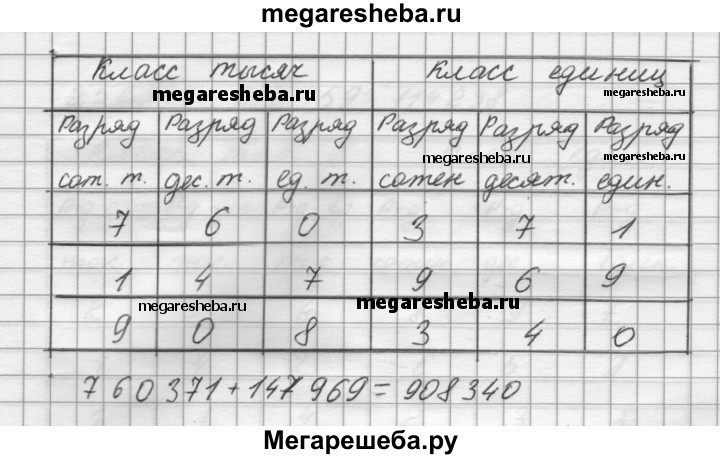 megaresheba.ru
Класс тысяч Класс единиц
megaresheba.ru megaresheba.ru
Разряд Разряд Разряд Разряд Разряд Разряд
megaresheba.ru megaresheba.ru
сот. т. дес. т. ед. т. сотен десят. един.
7 6 0 3 7 1
1 4 7 9 6 9
megaresheba.ru megaresheba.ru
9 0 8 3 4 0
760371+147969=908340
Мегарешеба.ру